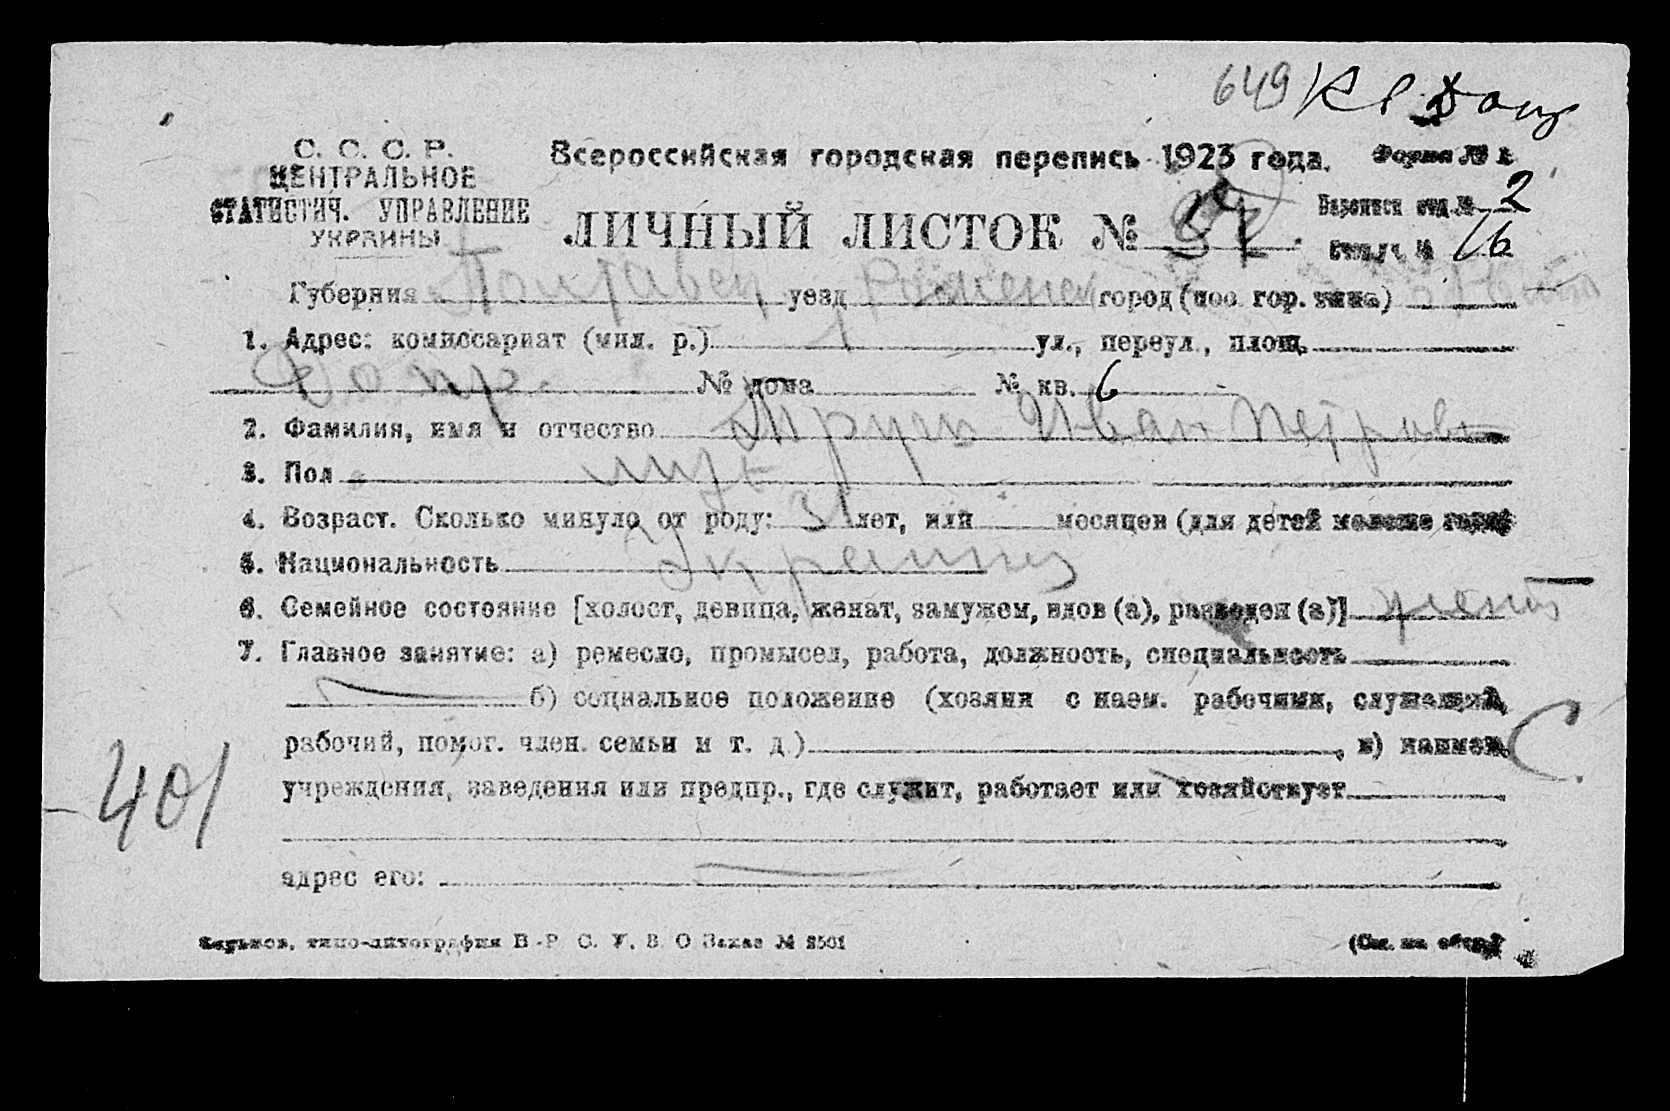 649
С. С. С. Р.
ЦЕНТРАЛЬНОЕ
СТАТИСТИЧ. УПРАВЛЕНИЕ
УКРАИНЫ
Всероссийская городская перепись 1923 года.
Форма № 1
ЛИЧНЫЙ ЛИСТОК №
№ 2
№ 16
Губерния Полтавск уезд Роменск город (пос. гор. типа)
1. Адрес: комиссариат (мил. р.) ул., переул., площ.
Допр. № дома № кв. 6
2. Фамилия, имя и отчество Иван Петров
3. Пол муж
4. Возраст. Сколько минуло от роду: 31 лет, или месяцев (для детей моложе года)
5. Национальность Украинец
6. Семейное состояние [холост, девица, женат, замужем, вдов (а), разведен (а)] женат
7. Главное занятие: а) ремесло, промысел, работа, должность, специальность
б) социальное положение (хозяин с наем. рабочими, служащий,
рабочий, помог. член. семьи и т. д.) , в) наимен.
С.
учреждения, заведения или предпр., где служит, работает или хозяйствует
401
адрес его:
Харьков, типо-литография В-Р. С. У. В. О Заказ № 8501
(См. на обор.)